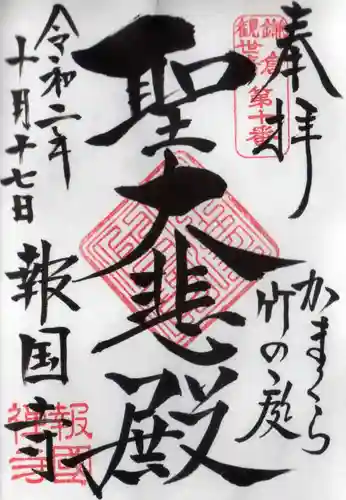 奉拝
鎌倉
観世音第十番
かまくら
竹の庭
聖大悲殿
令和二年
十月十七日
報国寺
報国
禅寺